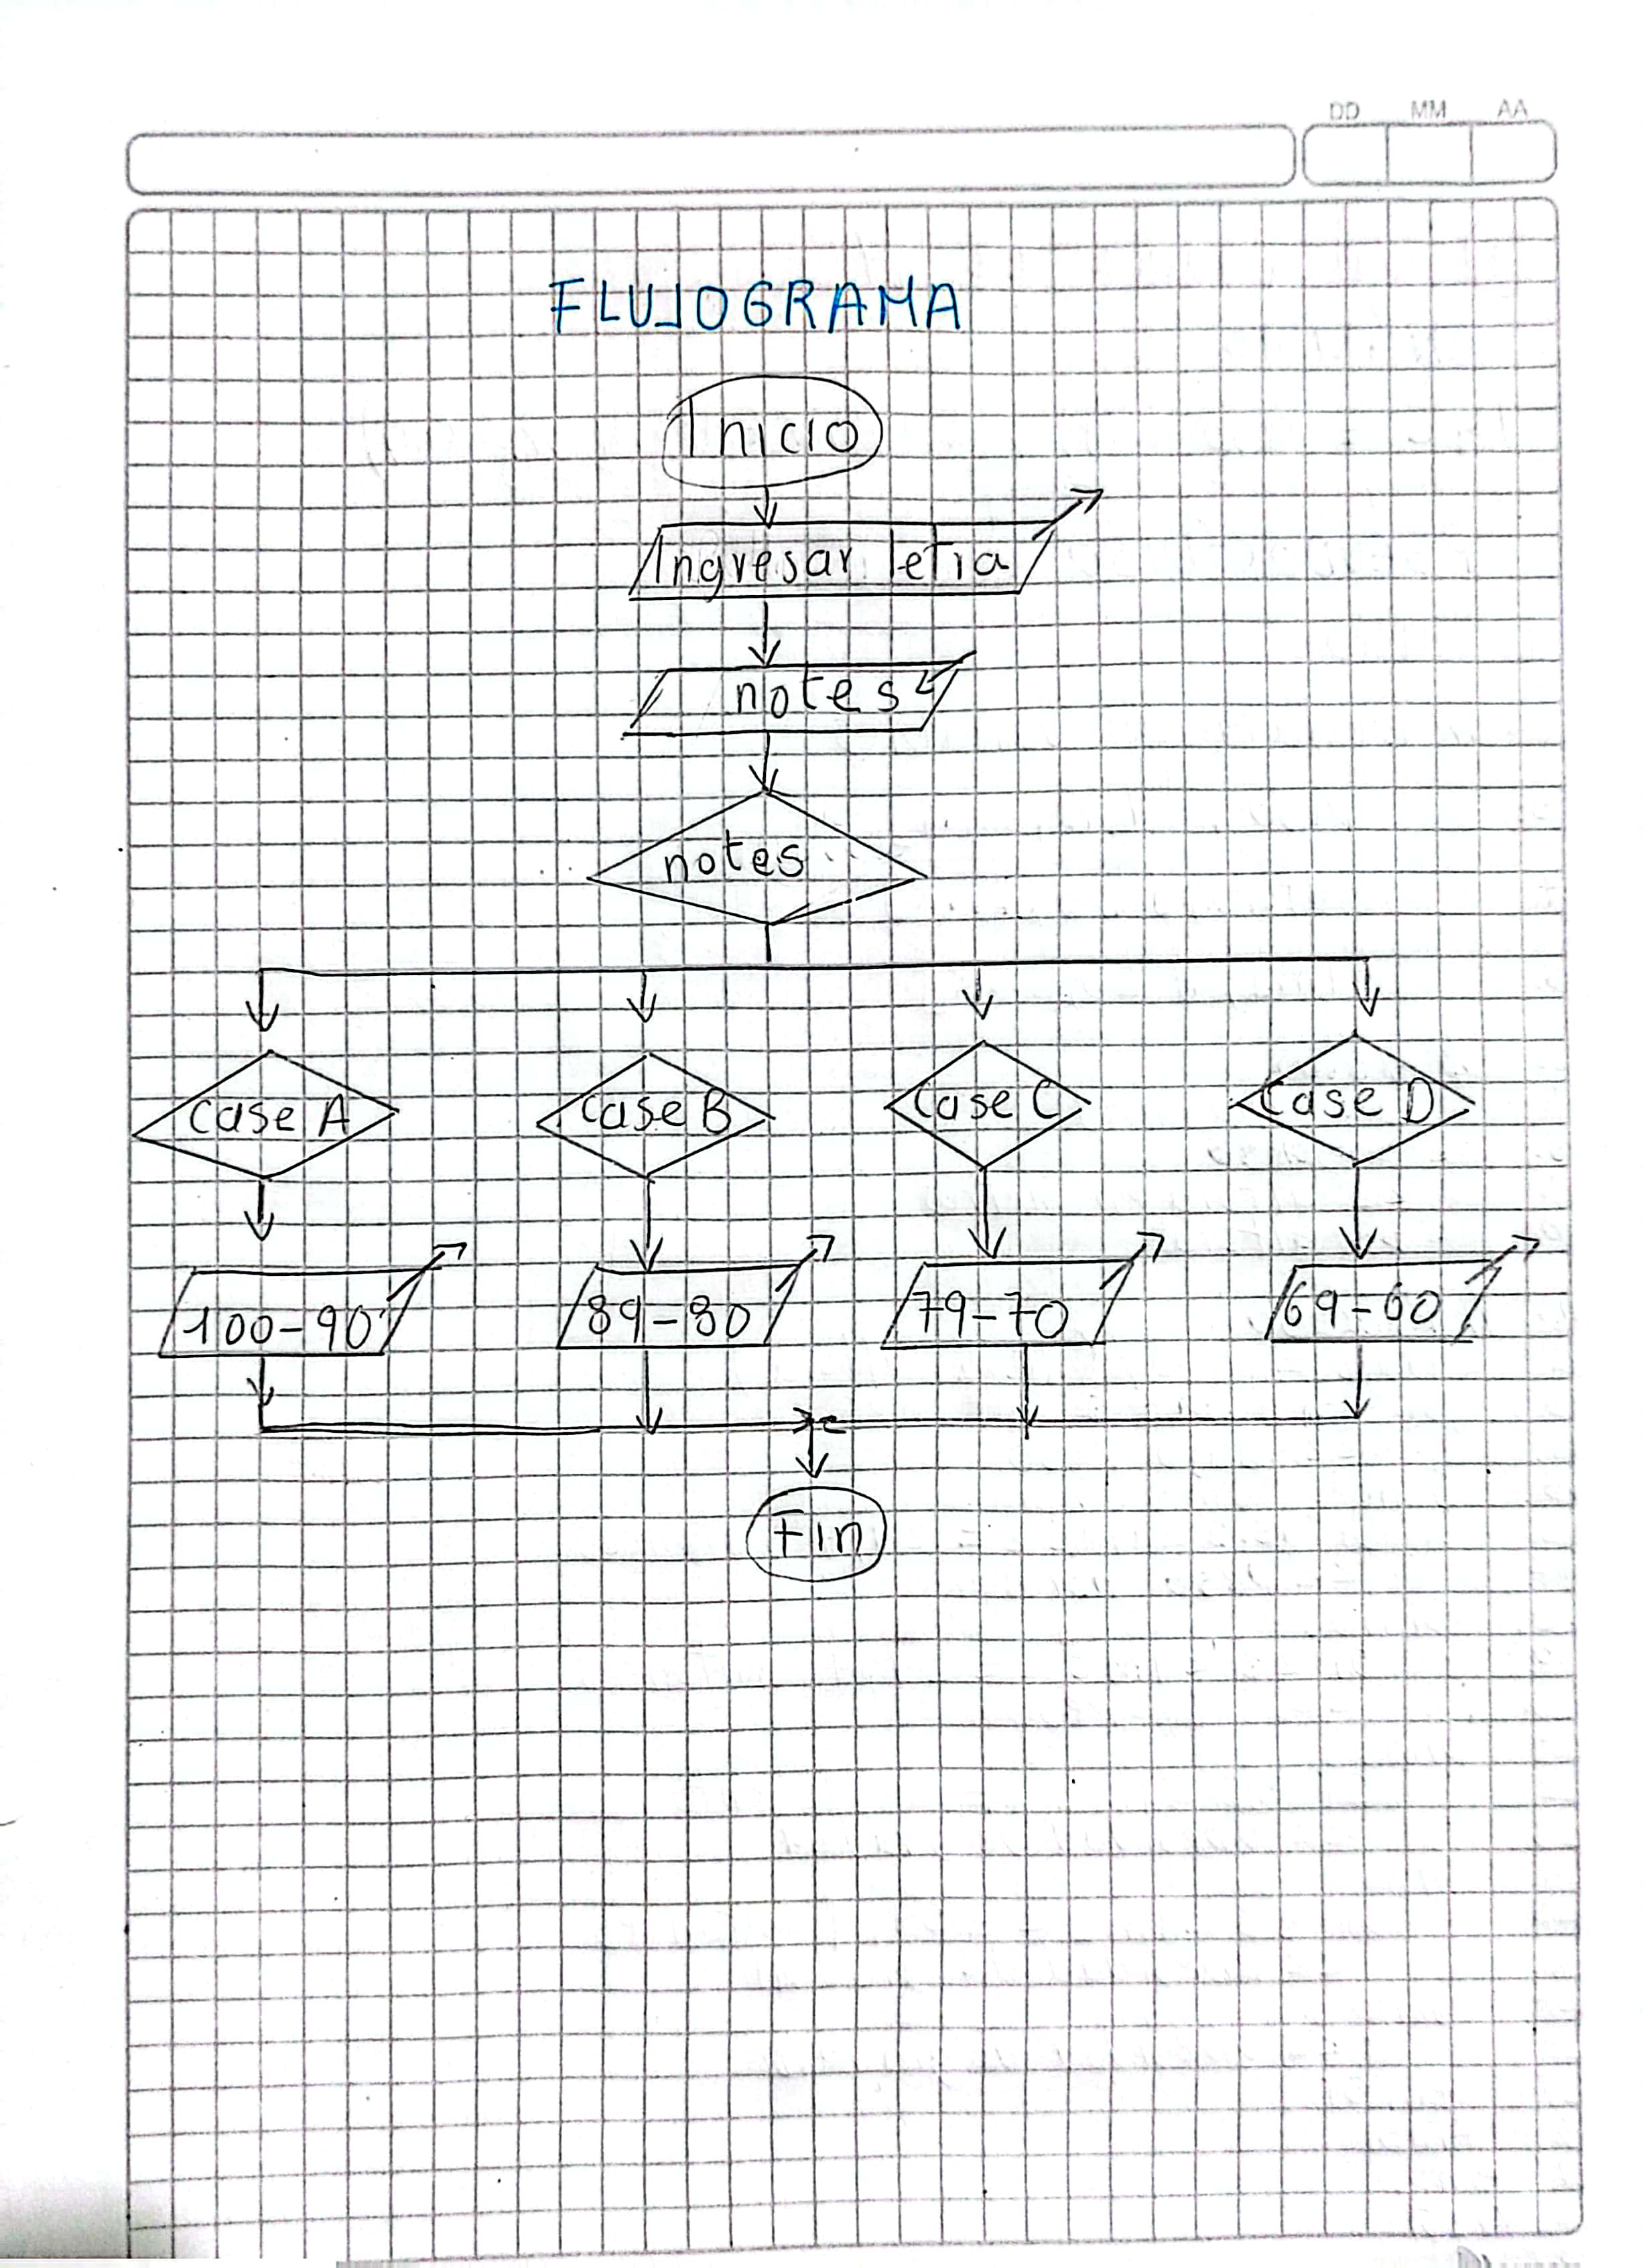 DD MM AA
FLUJOGRAMA
Inicio
Ingresar letra
notes
notes
case A case B case C case D
100-90 89-80 79-70 69-60
Fin